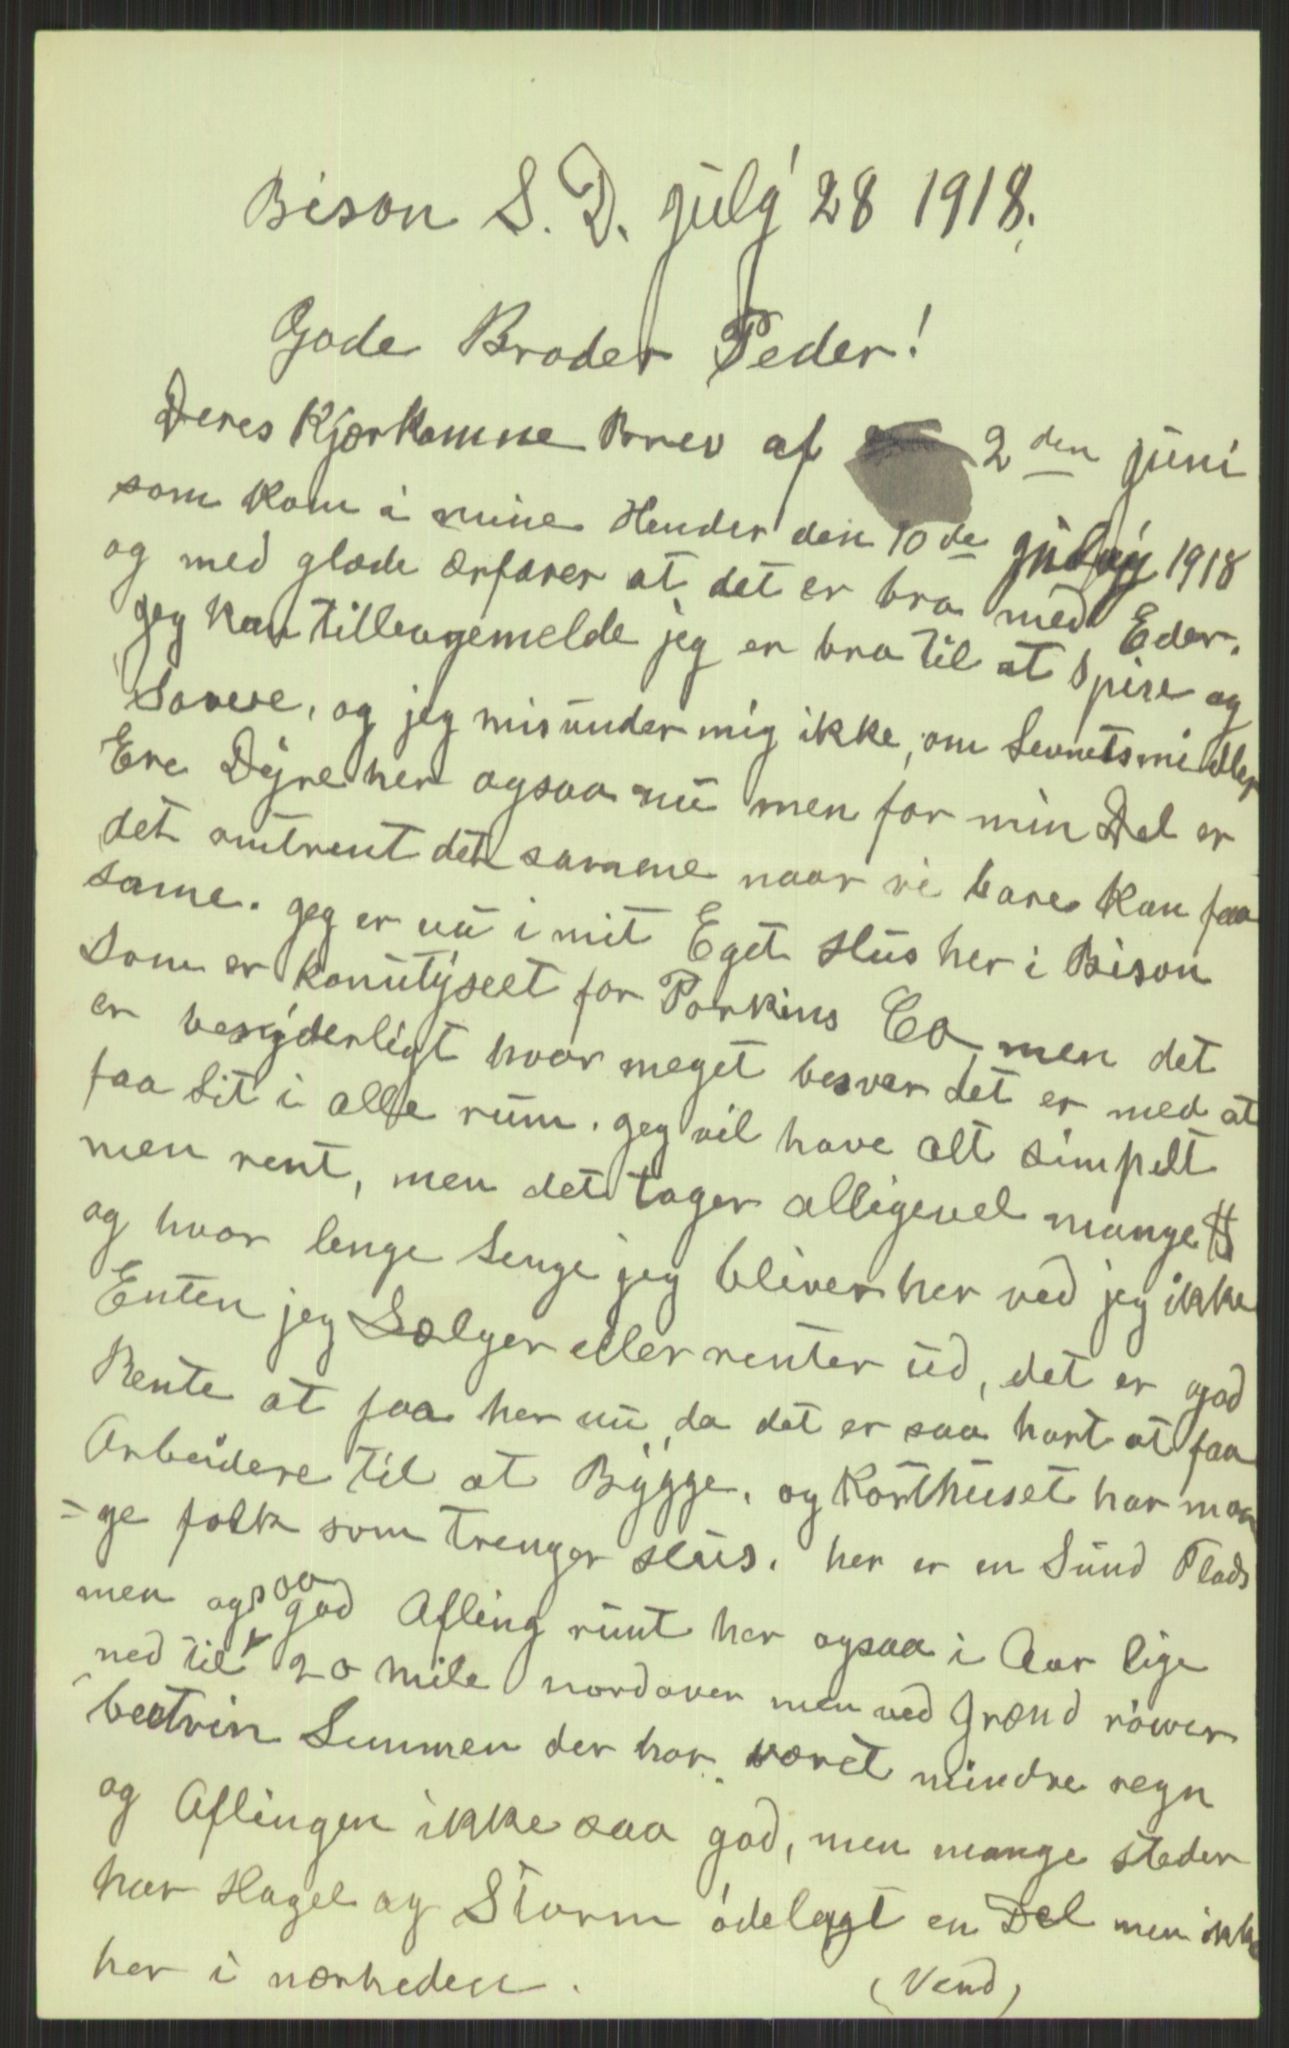 Bison S. D. july 28 1918.
Gode Broder Peder!
Deres Kjærkomne Brev af 2 den juni
som kom i mine Hender den 10 de july 1918
og med glæde Erfarer at det er bra med Eder.
jeg kan tilbagemelde jeg er bra til at Spise og
Sovese, og jeg misunder mig ikke, om Levnetsmidler
Ere Dyre her ogsaa nu men for min Del er
det omtrent det samme naar vi bare kan faa
same. jeg er nu i mit Eget Hus her i Bison
som er kountyseet for Perkins Co, men det
er besyderligt hvor meget besvær det er med at
faa Sit i alle rum. jeg vil have alt simpelt
men rent, men det tager alligevel mange $
og hvor lenge Lenge jeg bliver her ved jeg ikke
Enten jeg Sælger eller renter ud, det er god
Rente at faa her nu, da det er saa hart at faa
Arbeidere til at Bygge. og Korthuset har man
=ge folk som trenger Hus. her er en Sund Plads
men ogsaa god Afling runt her ogsaa i Aar lige
ned til 20 mile nordover men ved Grænd river
bectvin Lemmen der har været mindre regn
og Aflingen ikke saa god, men mange steder
har Hagel og Storm ødelagt en Del men ikke
her i nærheden.
(Vend)